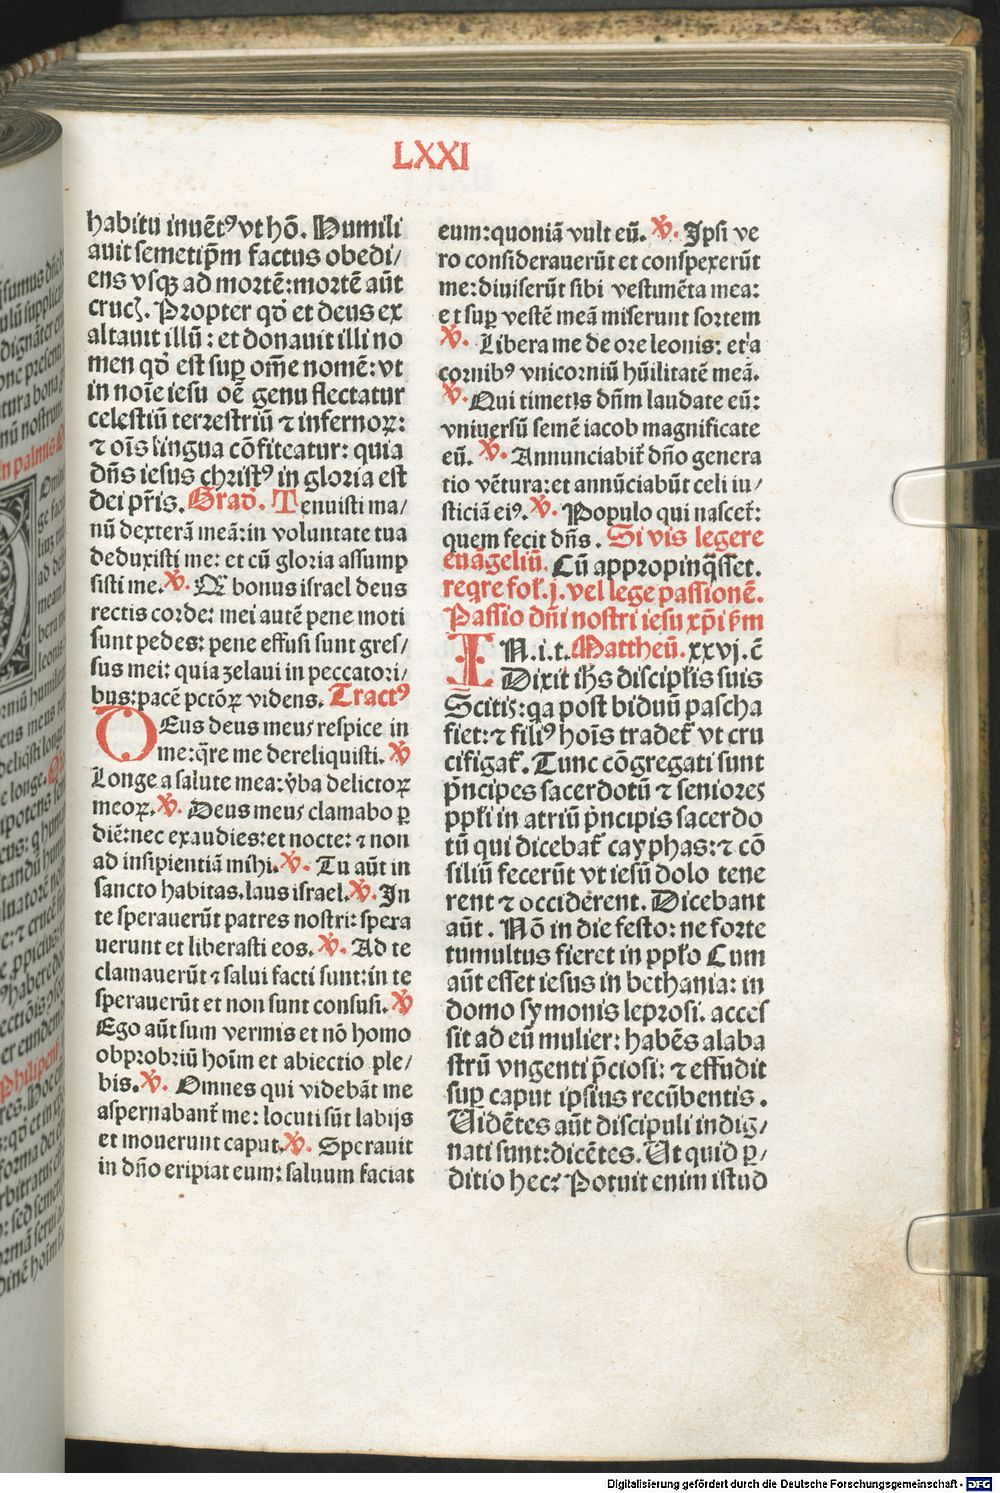 LXXI
habitu inuẽtꝰ vt hõ. Humili
auit semetip̃m factus obedi/
ens vsqꝫ ad mortẽ: mortẽ aũt
crucꝭ. Propter qď et deus ex
altauit illũ: et donauit illi no
men qď est suꝑ om̃e nomẽ: vt
in noĩe iesu oẽ genu flectatur
celestiũ terrestriũ ⁊ infernoꝝ:
⁊ oĩs lingua cõfiteatur: quia
dñs iesus christꝰ in gloria est
dei pr̃is. Graď. Tenuisti ma/
nũ dexterã meã: in voluntate tua
deduxisti me: et cũ gloria assump
sisti me. ℣. Q̃ bonus israel deus
rectis corde: mei autẽ pene moti
sunt pedes: pene effusi sunt gres/
sus mei: quia zelaui in peccatori/
bus: pacẽ pctõꝝ videns. Tractꝰ
DEus deus meus respice in
me: q̃re me dereliquisti. ℣
Longe a salute mea: v̓ba delictoꝝ
meoꝝ. ℣. Deus meus clamabo ꝑ
diẽ: nec exaudies: et nocte: ⁊ non
ad insipientiã mihi. ℣. Tu aũt in
sancto habitas. laus israel. ℣. In
te sperauerũt patres nostri: spera
uerunt et liberasti eos. ℣. Ad te
clamauerũt ⁊ salui facti sunt: in te
sperauerũt et non sunt confusi. ℣
Ego aũt sum vermis et nõ homo
obprobriũ hoĩm et abiectio ple/
bis. ℣. Omnes qui videbãt me
aspernabant̃ me: locuti sũt labijs
et mouerunt caput. ℣. Sperauit
in dño eripiat eum: saluum faciat
eum: quoniã vult eũ. ℣. Ipsi ve
ro considerauerũt et conspexerũt
me: diuiserũt sibi vestimẽta mea:
et suꝑ vestẽ meã miserunt sortem
℣. Libera me de ore leonis: et a
cornibꝰ vnicorniũ hũilitatẽ meã.
℣. Qui timetis dñm laudate eũ:
vniuersũ semẽ iacob magnificate
eũ. ℣. Annunciabit̃ dño genera
tio vẽtura: et annũciabũt celi iu/
sticiã eiꝰ. ℣. Populo qui nascet̃:
quem fecit dñs. Si vis legere
euãgeliũ. Cũ appropinq̃sset.
reqre fol̃. j. vel lege passionẽ.
Passio dñi nostri iesu xp̃i ẞm
IN. i. t. Mattheũ. xxvj. c̃
Dixit ihs̃ discipl̃is suis
Scitis: qa post biduũ pascha
fiet: ⁊ filiꝰ hoĩs tradet̃ vt cru
cifigat̃. Tunc cõgregati sunt
pñcipes sacerdotũ ⁊ seniores
ppl̃i in atriũ pñcipis sacerdo
tũ qui dicebat̃ cayphas: ⁊ cõ
siliũ fecerũt vt iesũ dolo tene
rent ⁊ occiderent. Dicebant
aũt. Nõ in die festo: ne forte
tumultus fieret in ppl̃o Cum
aũt esset iesus in bethania: in
domo symonis leprosi. acces
sit ad eũ mulier: habẽs alaba
strũ vngenti p̃ciosi: ⁊ effudit
suꝑ caput ipsius recũbentis.
Uidẽtes aũt discipuli indig/
nati sunt: dicẽtes. Ut quid ꝑ/
ditio hec? Potuit enim istud
Digitalisierung gefördert durch die Deutsche Forschungsgemeinschaft - DFG